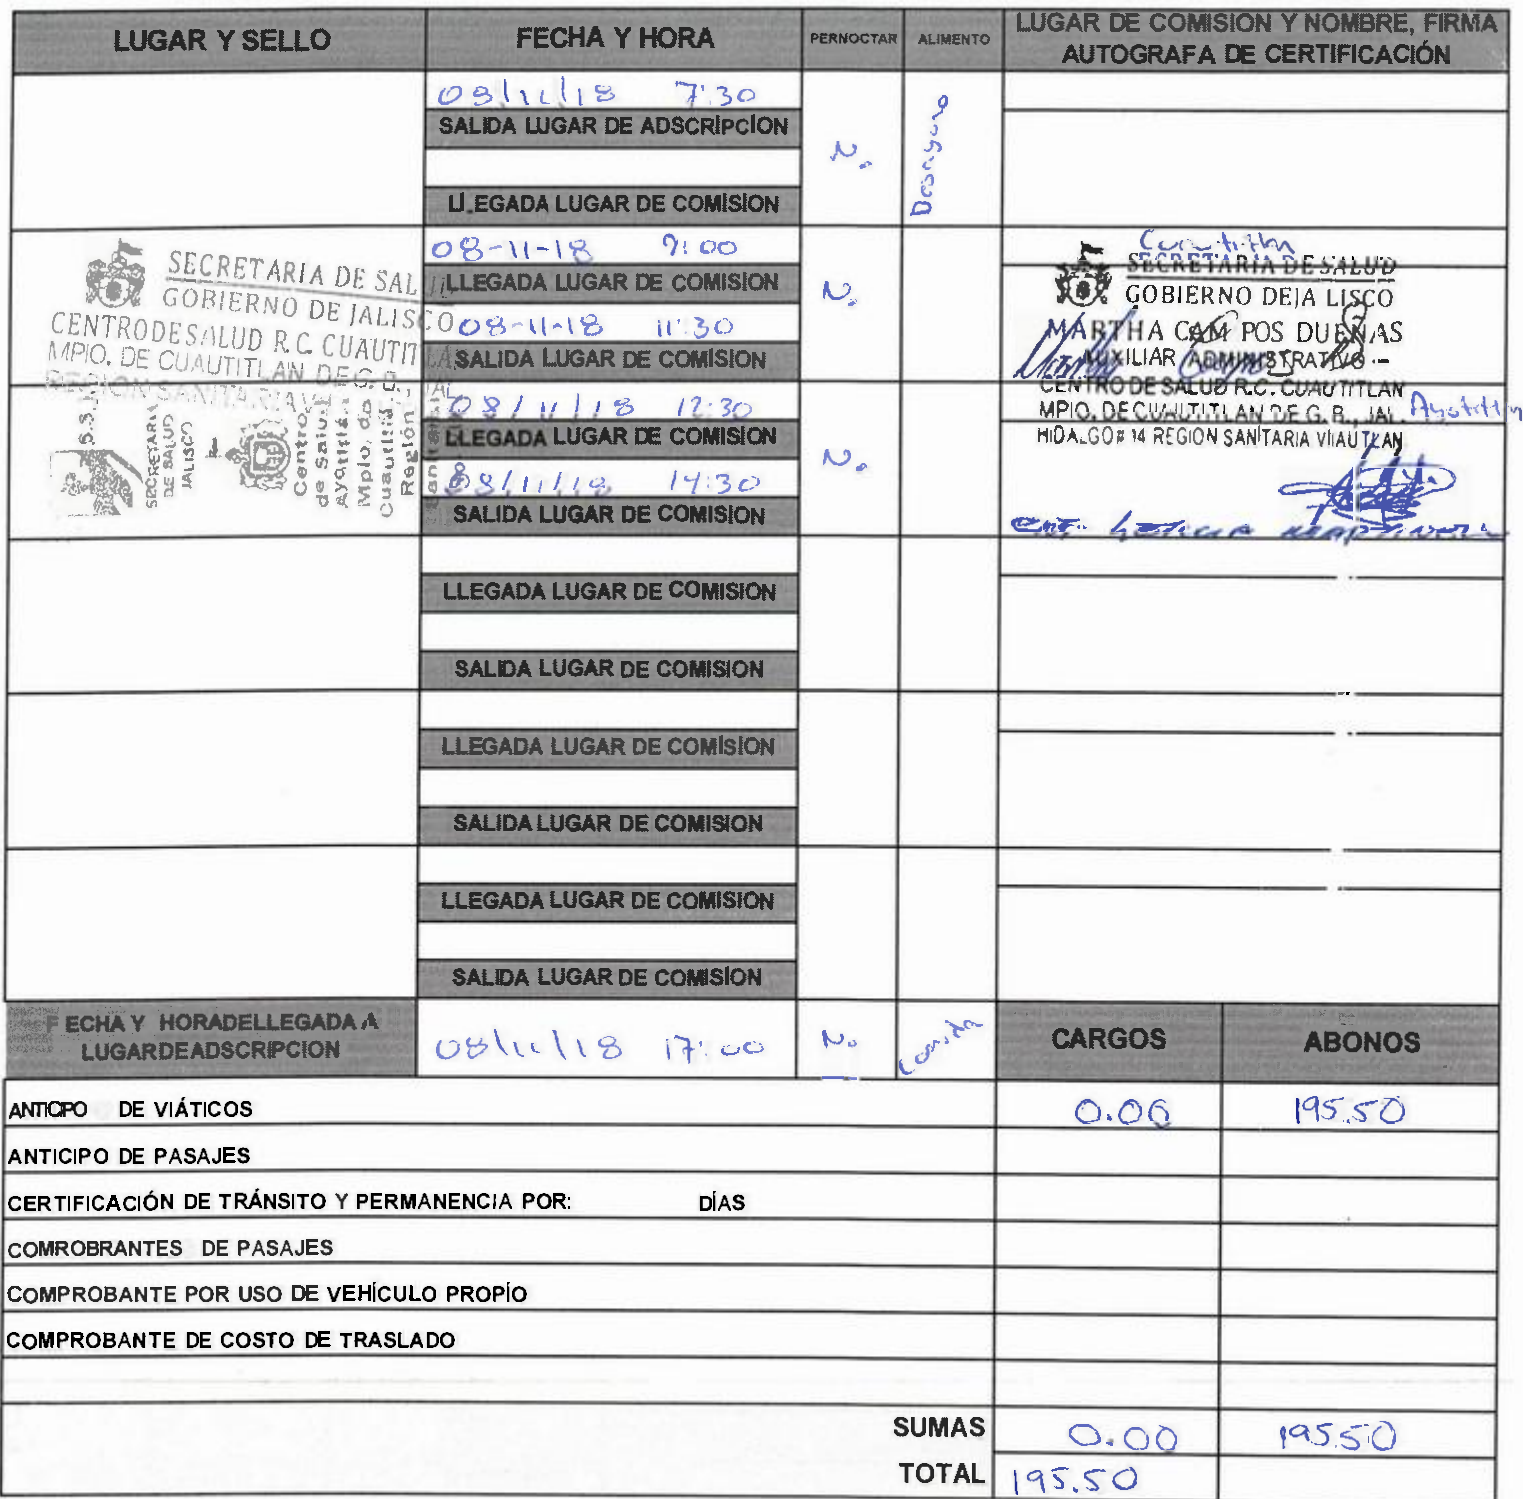 LUGAR Y SELLO
FECHA Y HORA
PERNOCTAR
ALIMENTO
LUGAR DE COMISION Y NOMBRE, FIRMA
AUTOGRAFA DE CERTIFICACIÓN
08/11/18 7:30
SALIDA LUGAR DE ADSCRIPCION
No
Desayuno
LLEGADA LUGAR DE COMISION
08-11-18 9:00
LLEGADA LUGAR DE COMISION
08-11-18 11:30
SALIDA LUGAR DE COMISION
No
SECRETARIA DE SAL
GOBIERNO DE JALISCO
CENTRODESALUD R.C. CUAUTITLA
MPIO. DE CUAUTITLAN DE G. B., JAL
REGION SANITARIA
Cuautitlan
SECRETARIA DE SALUD
GOBIERNO DEJA LISCO
MARTHA CAM POS DUEÑAS
AUXILIAR ADMINISTRATIVO
CENTRO DE SALUD R.C. CUAUTITLAN
MPIO. DE CUAUTITLAN DE G. B., JAL.
HIDALGO# 14 REGION SANITARIA VIIAUTLAN
08/11/18 12:30
LLEGADA LUGAR DE COMISION
08/11/18 14:30
SALIDA LUGAR DE COMISION
No
S.S.J
SECRETARIA
DE SALUD
JALISCO
Centro
de Salud
Ayotitla
Mpio. de
Cuautitla
Región
Sanitaria
Ayotitlan
LLEGADA LUGAR DE COMISION
SALIDA LUGAR DE COMISION
LLEGADA LUGAR DE COMISION
SALIDA LUGAR DE COMISION
LLEGADA LUGAR DE COMISION
SALIDA LUGAR DE COMISION
FECHA Y HORADELLEGADA A
LUGARDEADSCRIPCION
08/11/18 17:00
No
Comida
CARGOS
ABONOS
ANTICIPO DE VIÁTICOS 0.00 195.50
ANTICIPO DE PASAJES
CERTIFICACIÓN DE TRÁNSITO Y PERMANENCIA POR: DÍAS
COMROBRANTES DE PASAJES
COMPROBANTE POR USO DE VEHÍCULO PROPÍO
COMPROBANTE DE COSTO DE TRASLADO
SUMAS 0.00 195.50
TOTAL 195.50